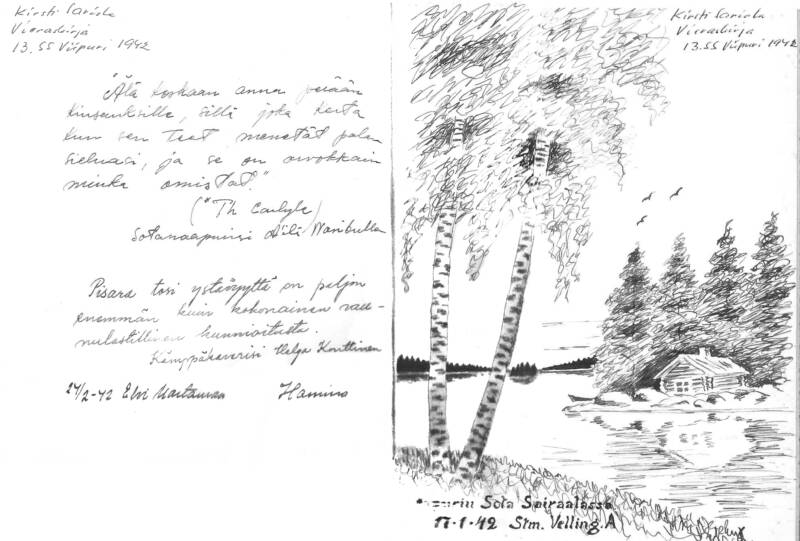 Kirsti
Vieraskirja
13. SS Viipuri 1942
"Älä koskaan anna perään
kiusauksille, sillä joka kerta
kun sen teet menetät palan
sieluasi, ja se on arvokkain
minkä omistat."
("Th Carlyle)
Sotanaapurisi Aili
Pisara tosi ystävyyttä on paljon
enemmän kuin kokonainen vau-
nulastillinen kunnioitusta.
Kämppäkaverisi Helga Konttinen
27/2-42 Elvi Hamina
Kirsti
Vieraskirja
13. SS Viipuri 1942
Sota Sairaalassa
17·1·42 Stm. Velling. A